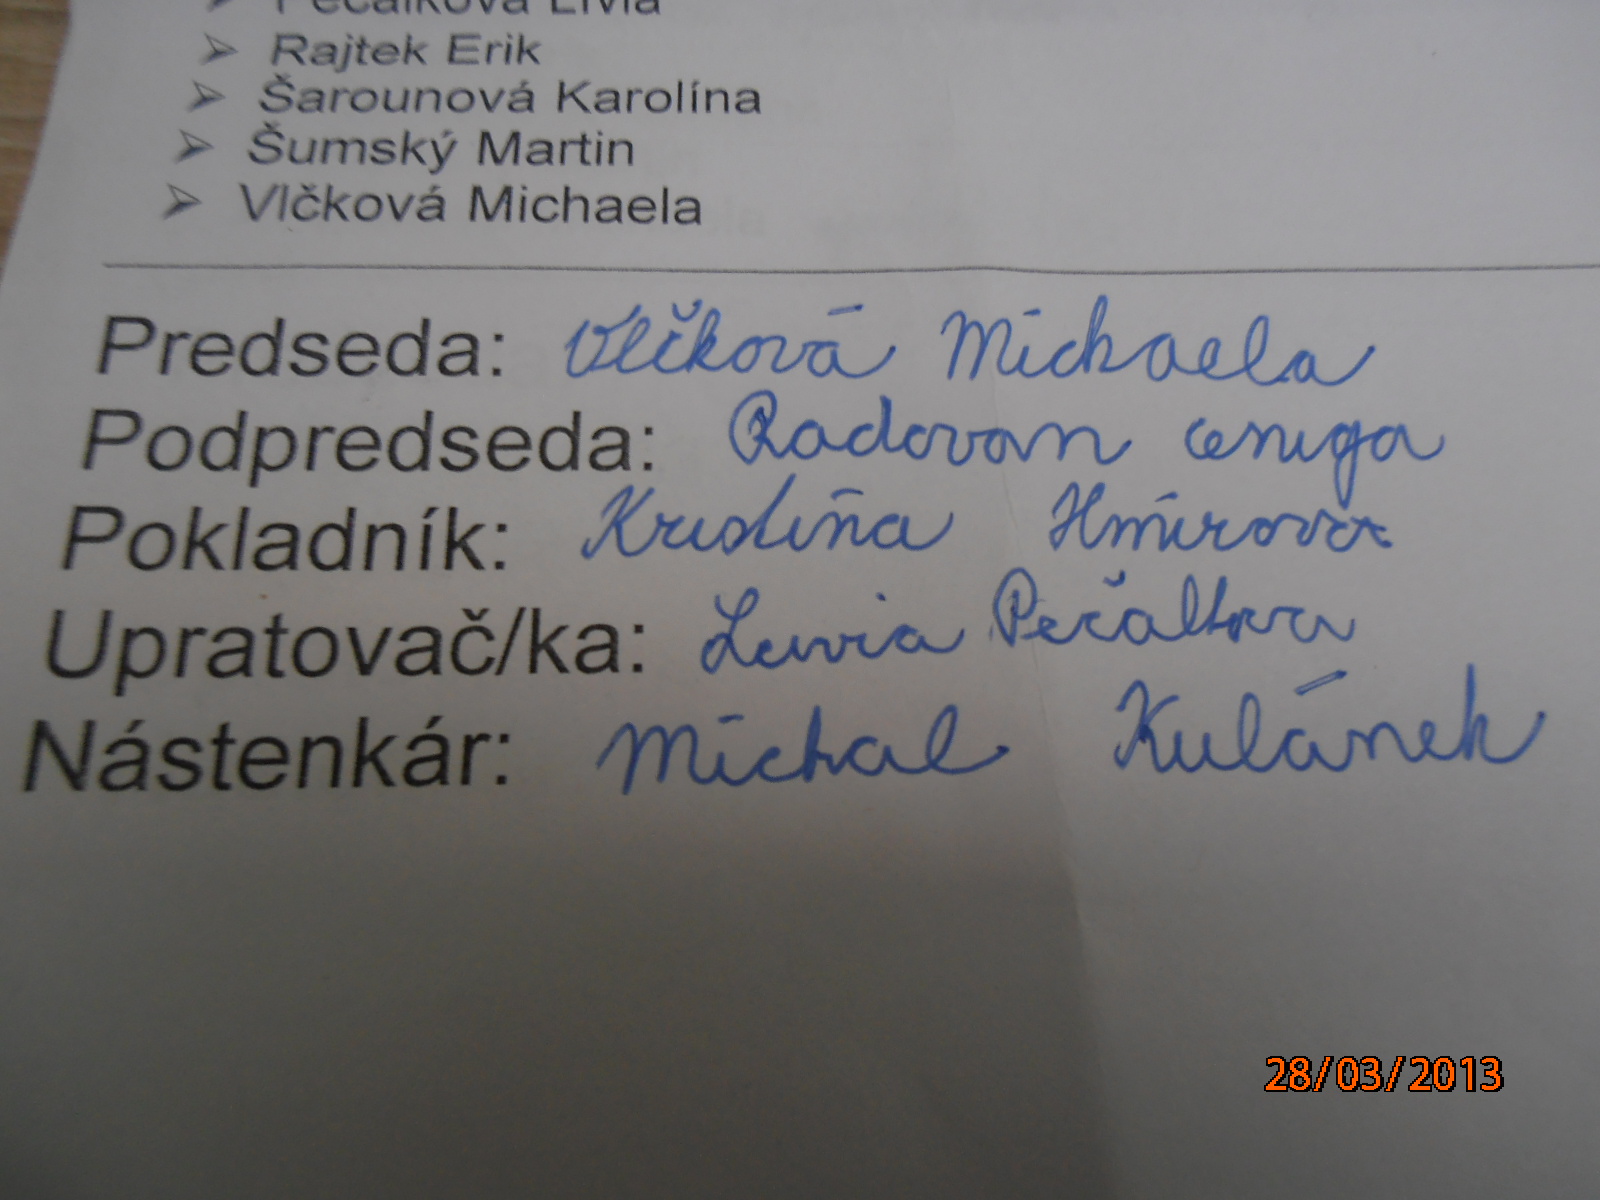 Pečalková Lívia
Rajtek Erik
Šarounová Karolína
Šumský Martin
Vlčková Michaela
Predseda: Vlčková Michaela
Podpredseda: Radovan ceniga
Pokladník: Kristína Hmírova
Upratovač/ka: Livia
Nástenkár: Michal Kulánek
28/03/2013